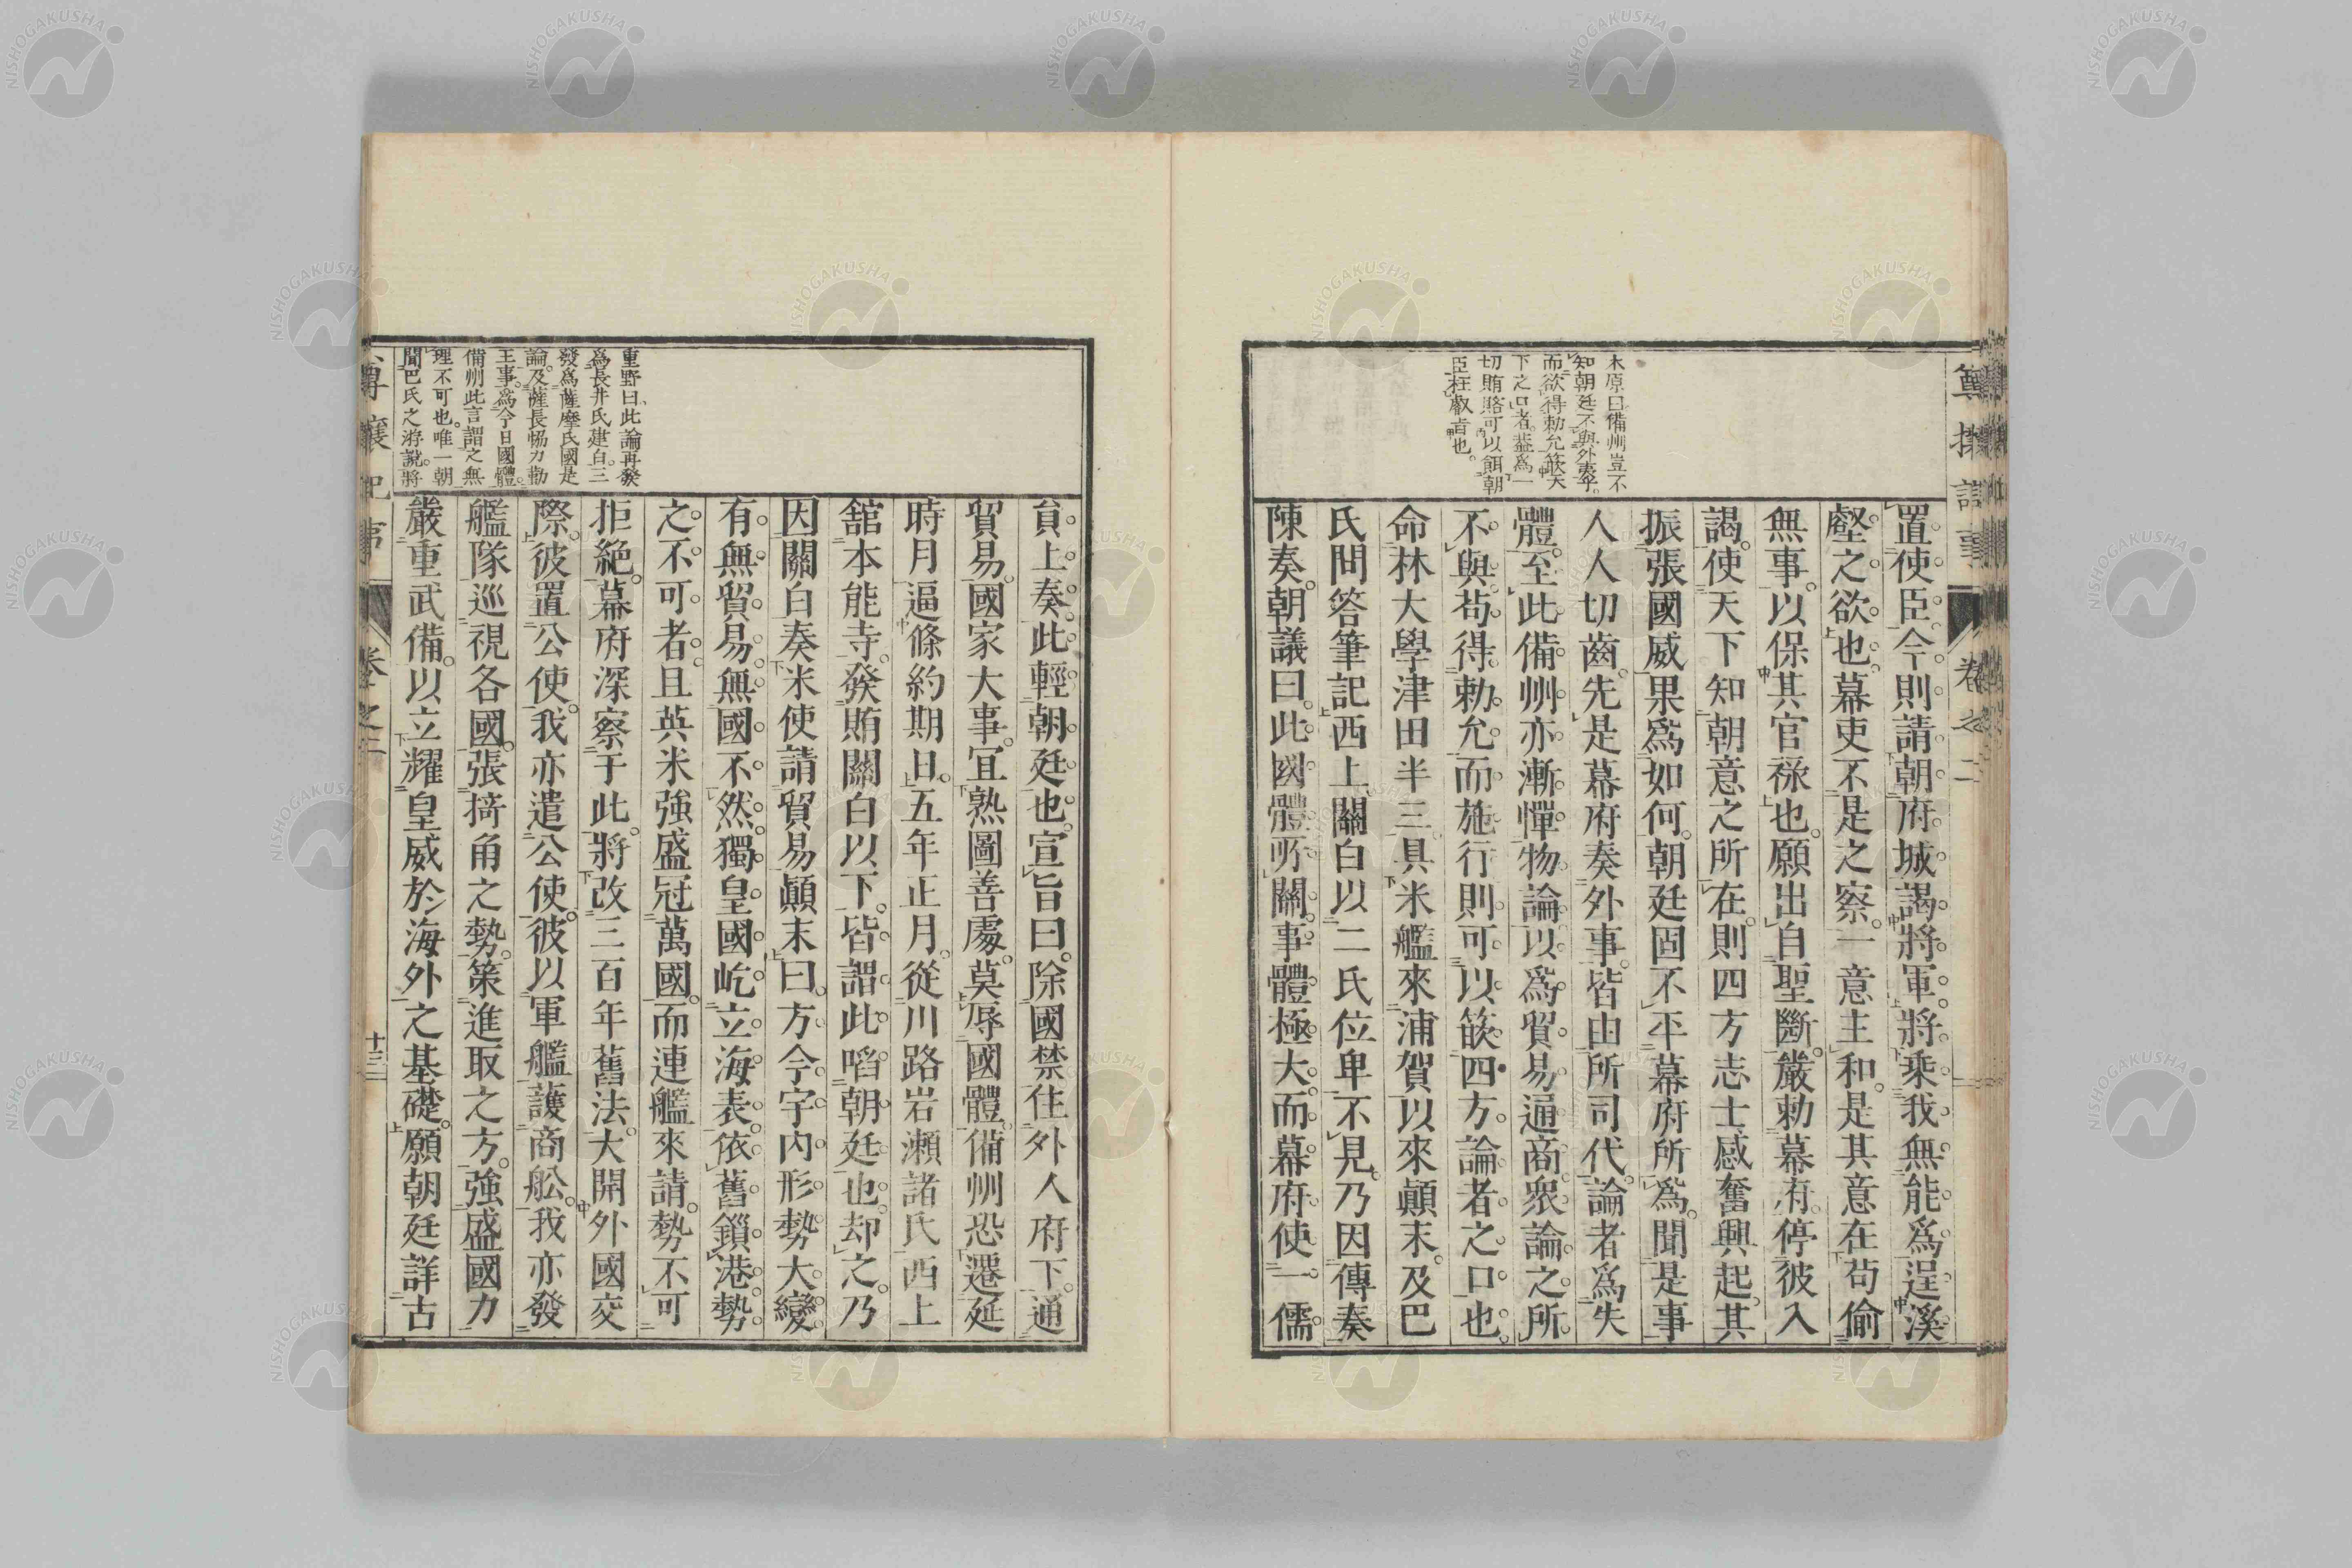 置使臣。今則請朝府城謁將軍。將乘我無能。爲逞溪
壑之欲也。幕吏不是之察。一意主和。是其意在苟偷
無事。以保其官祿也。願出自聖斷。嚴勅幕府。停彼入
謁。使天下知朝意之所在。則四方志士感奮興起。其
振張國威果爲如何。朝廷固不平幕府所爲。聞是事
人人切齒。先是幕府奏外事。皆由所司代。論者爲失
體。至此備州亦漸憚物論。以爲貿易通商衆論之所
不與。苟得勅允而施行。則可以箝四方論者之口也。
命林大學津田半三具米艦來浦賀以來顚末。及巴
氏問答筆記西上。關白以二氏位卑不見。乃因傳奏
陳奏。朝議曰。此國體所關。事體極大。而幕府使一儒
木原曰備州豈不
知朝廷不與外夷乎。
而欲得勅允箝天
下之口者。蓋爲一
切賄賂可以餌朝
臣枉叡旨也。
卷之二
員上奏。此輕朝廷也。宣旨曰。除國禁住外人府下。通
貿易。國家大事。宜熟圖善處。莫辱國體。備州恐遷延
時月逼條約期日。五年正月。從川路岩瀨諸氏西上
舘本能寺。發賄關白以下。皆謂此啗朝廷也。却之。乃
因關白奏米使請貿易顚末曰。方今宇內形勢大變。
有無貿易。無國不然。獨皇國屹立海表。依舊鎖港。勢
之不可者。且英米強盛冠萬國。而連艦來請。勢不可
拒絕。幕府深察于此。將改三百年舊法。大開外國交
際。彼置公使。我亦遣公使。彼以軍艦護商舩。我亦發
艦隊巡視各國。張掎角之勢。策進取之方。強盛國力
嚴重武備。以立耀皇威於海外之基礎。願朝廷詳古
重野曰此論再發
爲長井氏建白。三
發爲薩摩氏國是
論。及薩長恊力勤
王事。爲今日國體。
備州此言謂之無
理不可也。唯一朝
聞巴氏之游說。將
尊攘紀事
卷之二
十三
NISHOGAKUSHA